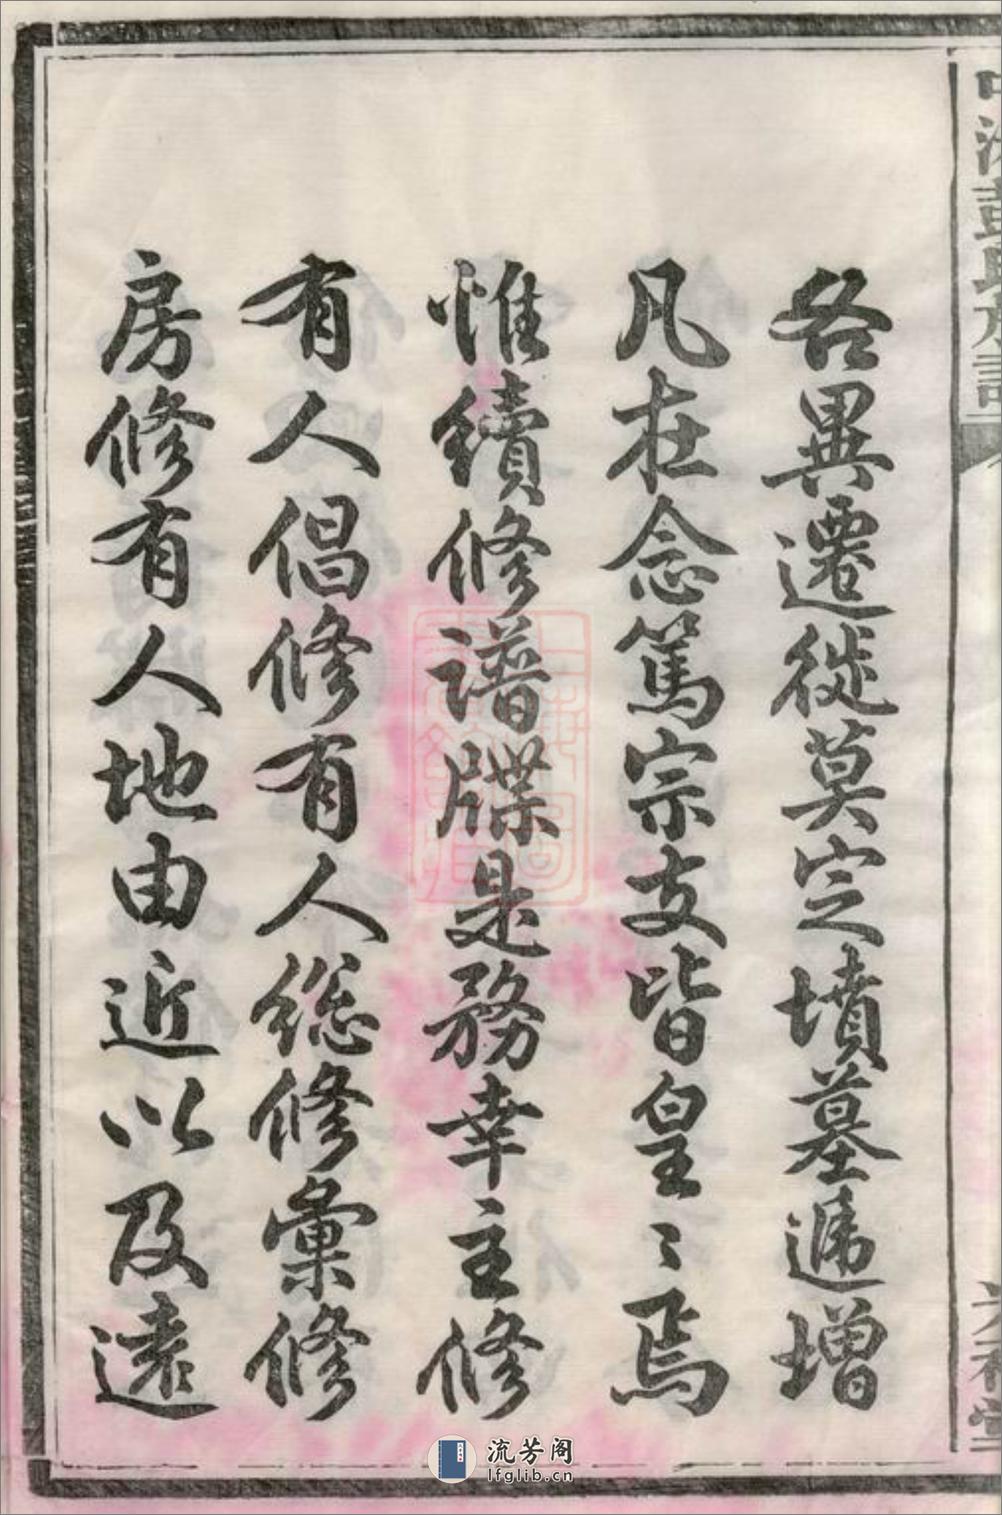 各異遷徙莫定墳墓遞增
凡在念篤宗支皆皇〻焉
惟續修譜牒是務幸主修
有人倡修有人総修彙修
房修有人地由近以及遠
流芳阁
lfglib.cn